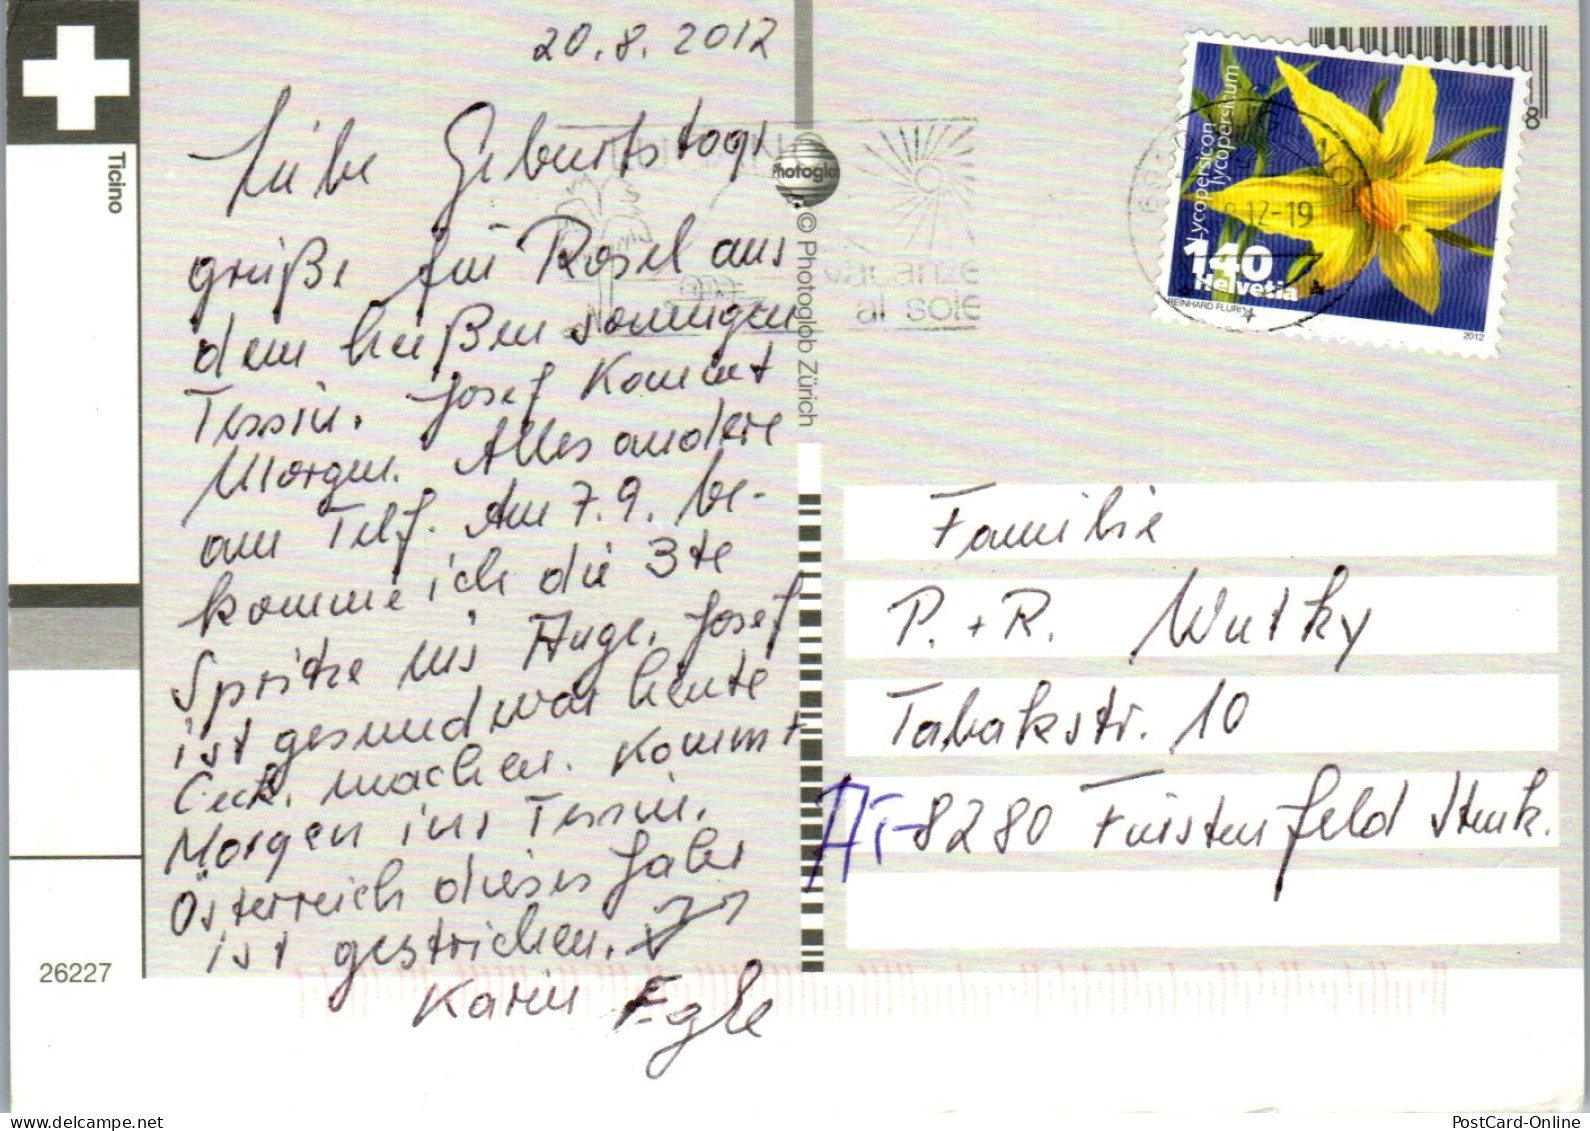 20.8.2012
Liebe Geburtstags
grüße für Rosel aus
dem heißen sonnigen
Tessin. Josef kommt
Morgen. Alles andere
am Telf. Am 7.9. be-
komme ich die 3te
Spritze ins Auge. Josef
ist gesund war heute
Check. machen. Kommt
Morgen ins Tessin.
Österreich dieses Jahr
ist gestrichen.
Karin Egle
Ticino
26227
Photoglob
© Photoglob Zürich
vacanze
al sole
12-19
Lycopersicon
lycopersicum
140
Helvetia
REINHARD FLURI
2012
8
Familie
P. + R. Wutky
Tabakstr. 10
AT-8280 Fürstenfeld Stmk.
PostCard-Online
www.delcampe.net